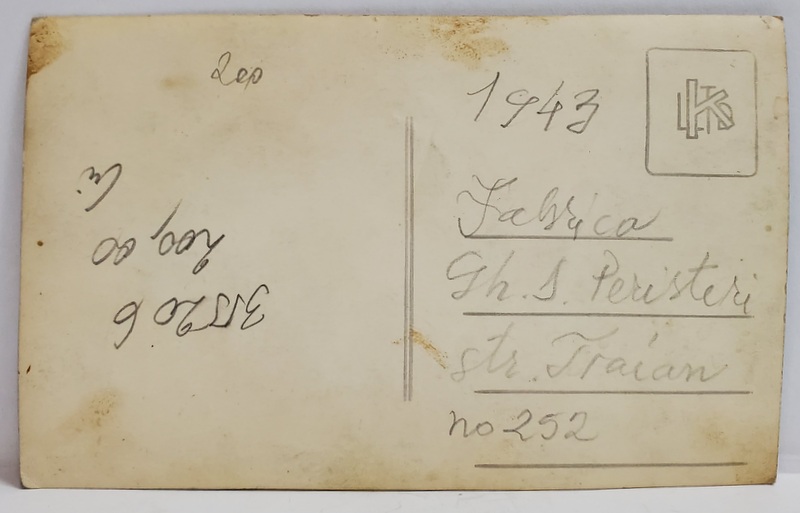 200
1943
Fabrica
Gh. S. Peristeri
str. Traian
no 252
315206
200,00